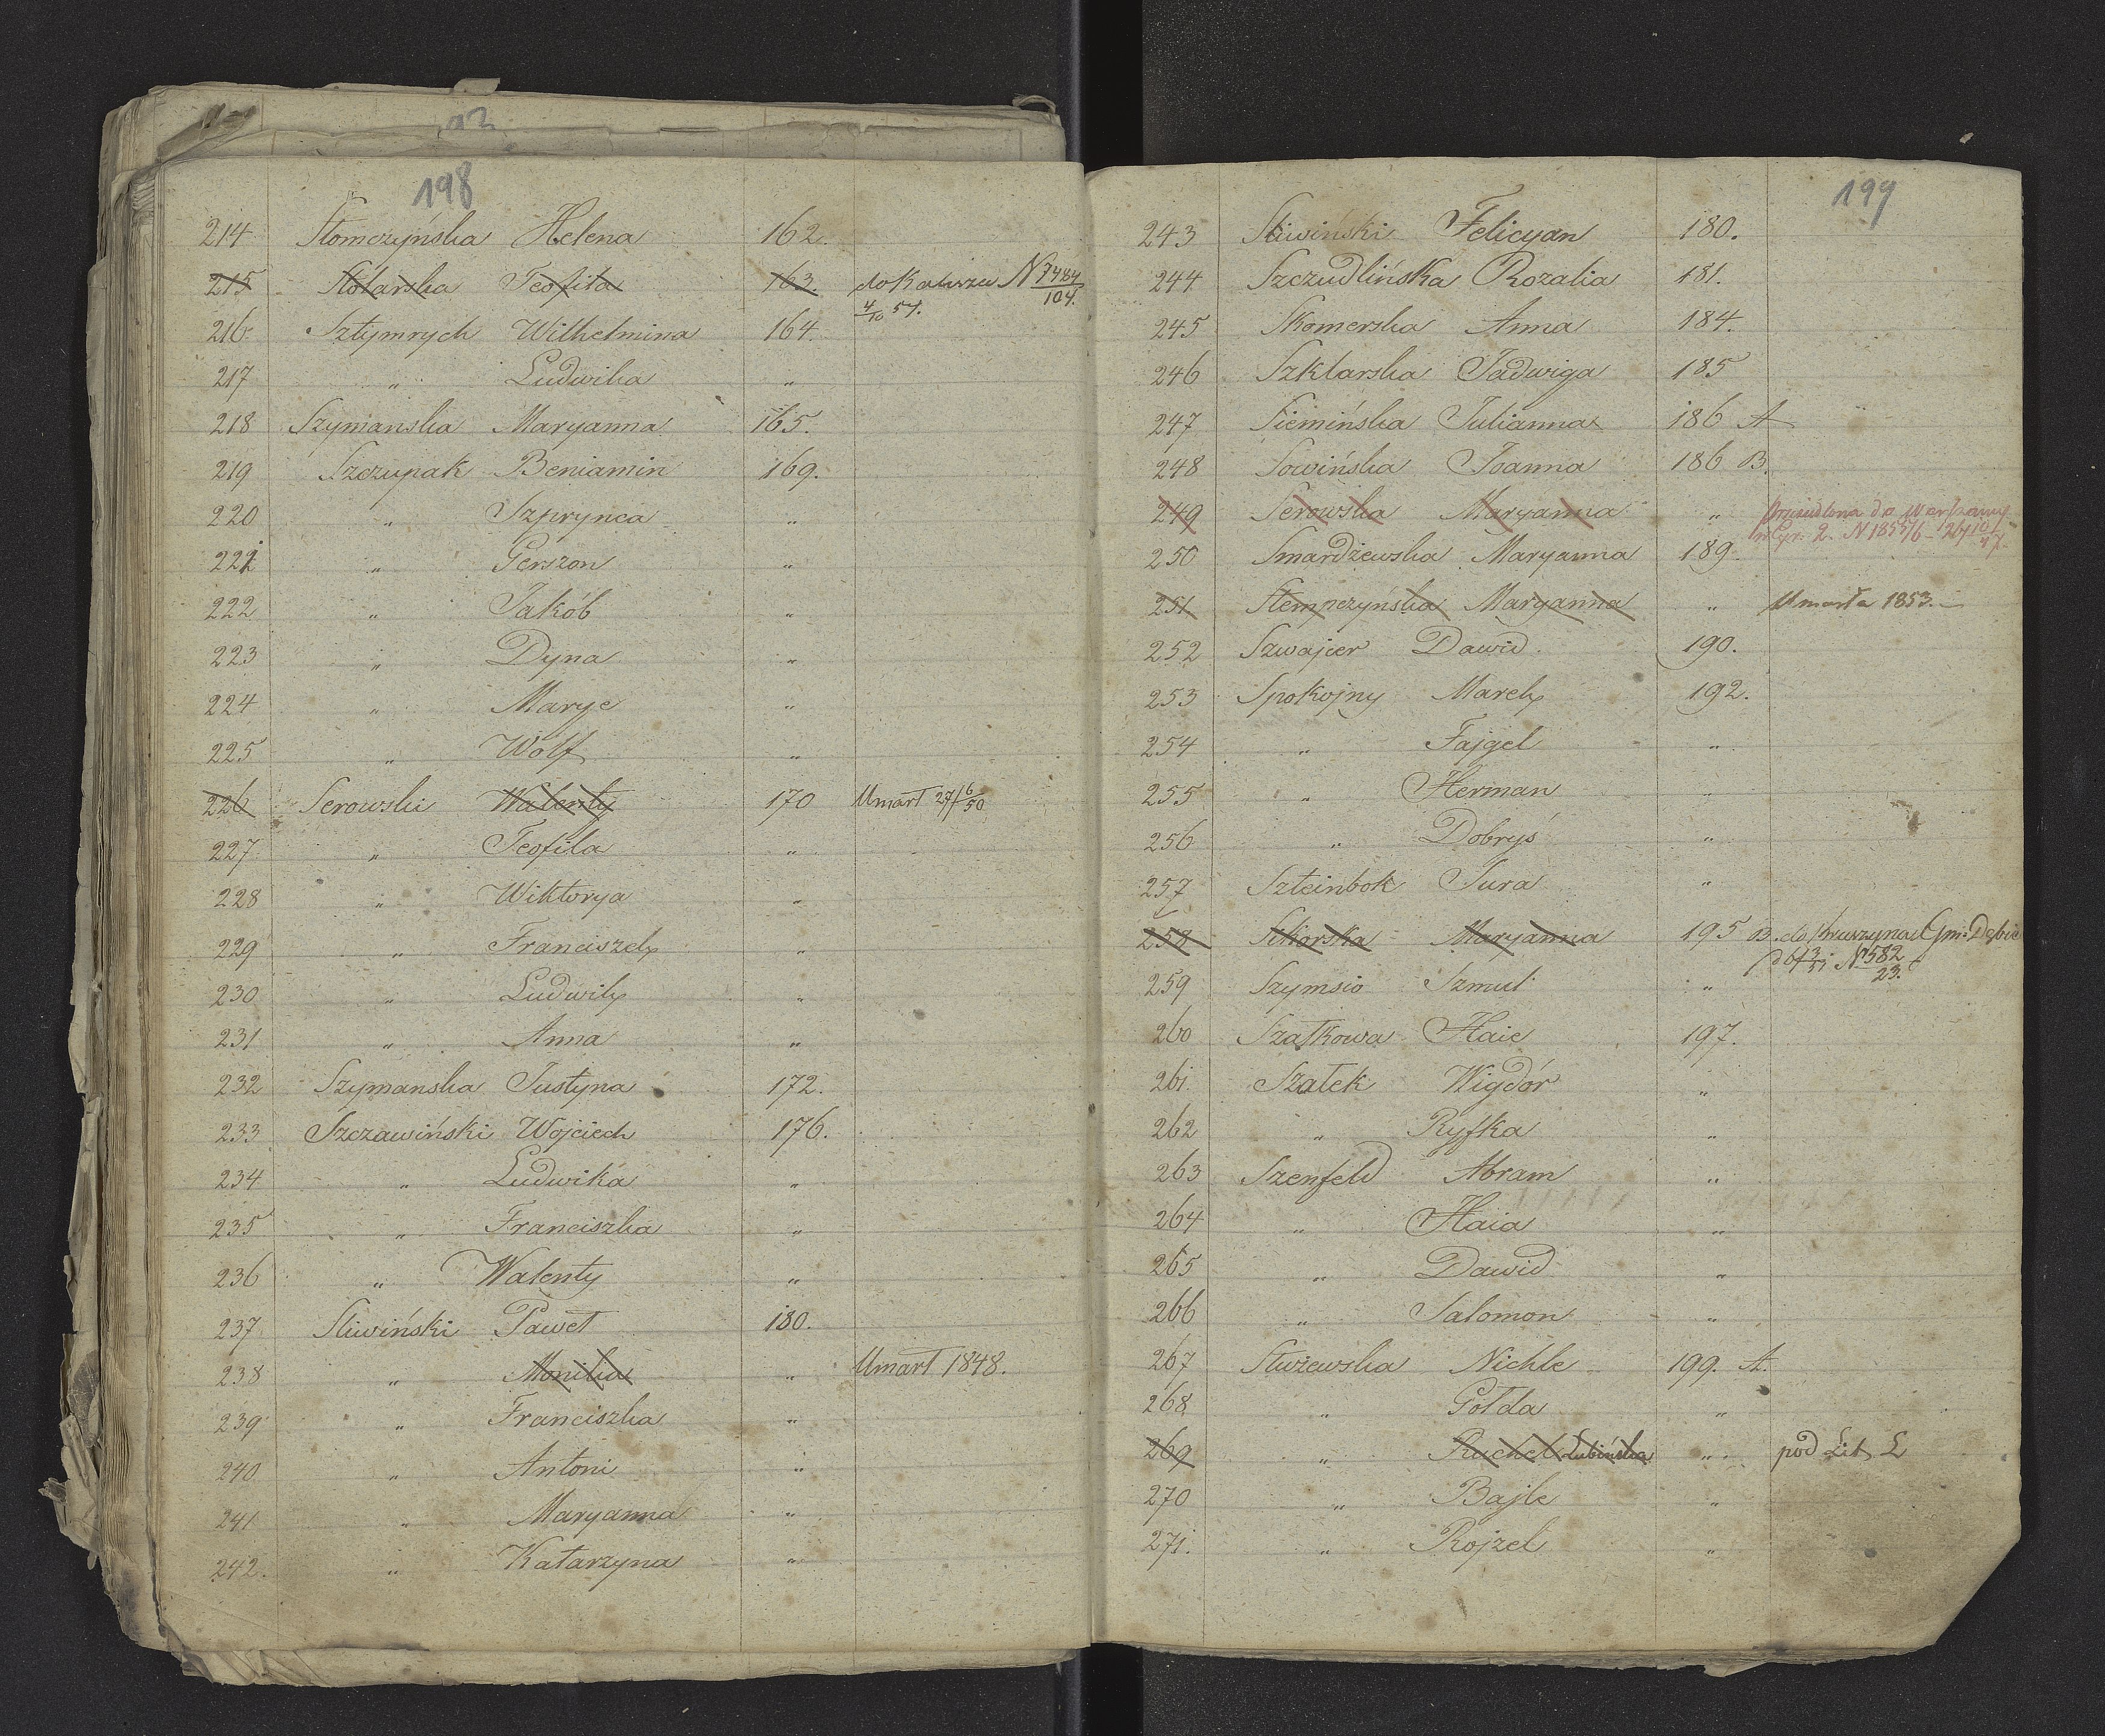 198
214 Słomczyńska Helena 162.
215 Stolarska Teofila 163. do Kalisza N 7484/104.
4/10 54.
216 Sztymrych Wilhelmina 164.
217 " Ludwika "
218 Szymanska Maryanna 165.
219 Szczupak Beniamin 169.
220 " Szprynca "
221 " Gerszon "
222 " Jakób "
223 " Dyna "
224 " Marye "
225 " Wolf "
226 Serowski Walenty 170 Umarł 27/6/50
227 " Teofila "
228 " Wiktorya "
229 " Franciszek "
230 " Ludwik "
231 " Anna "
232 Szymanska Justyna 172.
233 Szczawiński Wojciech 176.
234 " Ludwika "
235 " Franciszka "
236 " Walenty "
237 Sliwiński Paweł 180.
238 " Monika " Umarł 1848.
239 " Franciszka "
240 " Antoni "
241 " Maryanna "
242. " Katarzyna "
199
243 Sliwiński Felicyan 180.
244 Szczudlińska Rozalia 181.
245 Skomerska Anna 184.
246 Szklarska Jadwiga 185
247 Siemińska Julianna 186 A
248 Sowińska Joanna 186 B.
249 Serowska Maryanna " do Warszawy
250 Smardzewska Maryanna 189.
251 Stempczyńska Maryanna " Umarła 1853.
252 Szwajcer Dawid 190.
253 Spokojny Marek 192.
254 " Fajgel "
255 " Herman "
256 " Dobryś "
257 Szteinbok Sura "
258 Sikorska Maryanna 195 B. do Gm: Dębie
N 582/23.
259 Szymsio Szmul "
260 Szatkowa Haie 197.
261 Szatek Wigdór "
262 " Ryfka "
263 Szenfeld Abram "
264 " Haia "
265 " Dawid "
266 " Salomon "
267 Służewska Nichle 199. A.
268 " Gołda "
269 " Ruchel Lubińska " pod Lit L
270 " Bajle "
271. " Rojzel "